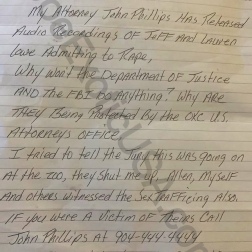 My Attorney John Phillips Has Released
Audio Recordings OF JEFF And Lauren
Lowe Admitting to Rape,
Why won't the Department of Justice
AND The FBI Do Anything? Why ARE
THEY Being Protected by the OKC U.S.
Attorneys OFFICE
I tried to tell the Jury this was going on
At the zoo, they shut me up, Allen, Myself
And others witnessed the Sex Trafficing Also.
IF you were A Victim of Theirs Call
John Phillips At 904-444-4444